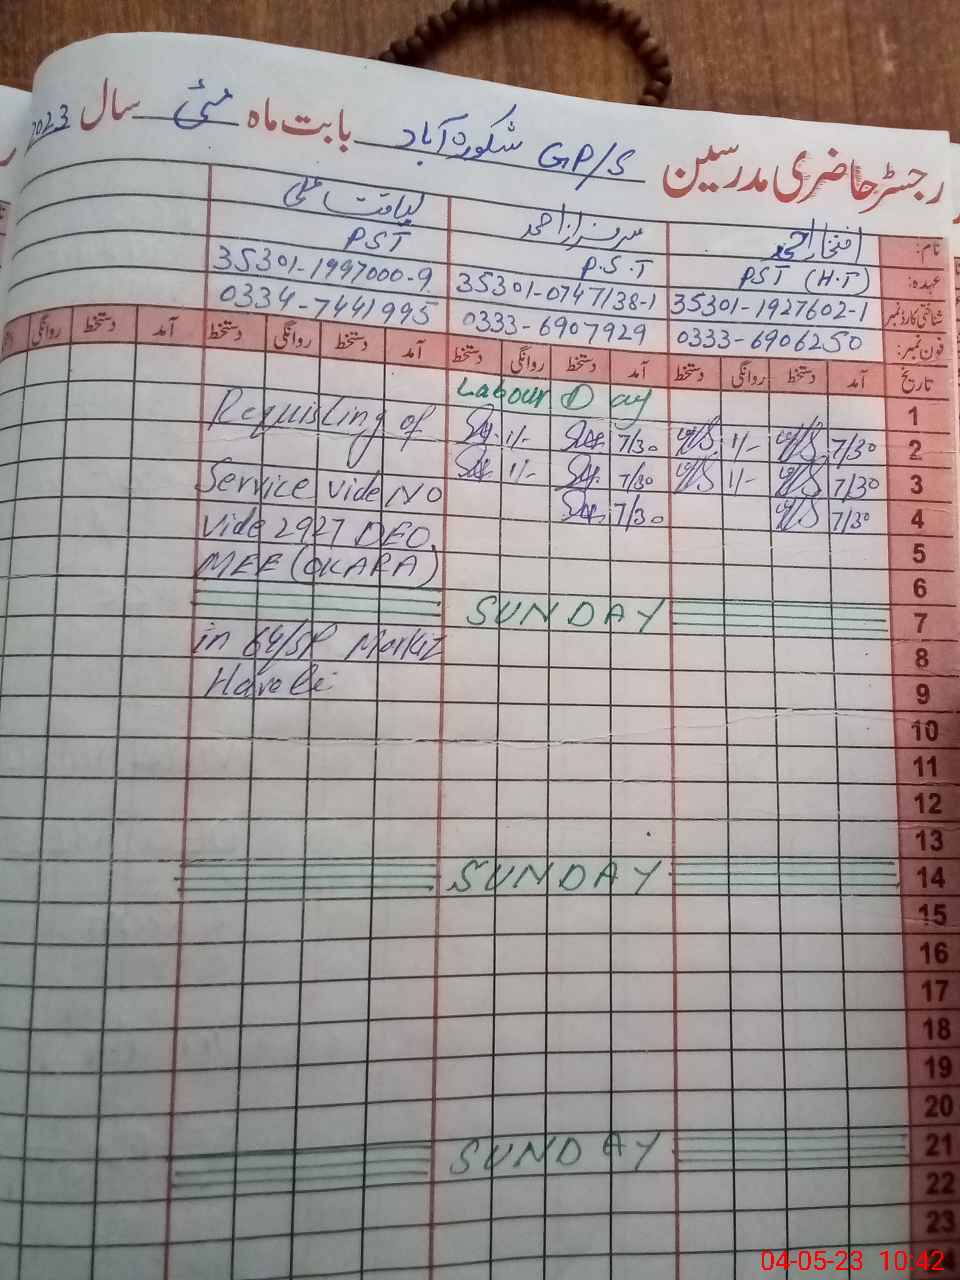 رجسٹر حاضری مدرسین GP/S شکورہ آباد بابت ماہ مئی سال 2023
نام: افتخار احمد سرفراز احمد لیاقت علی
عہدہ: PST (H.T) P.S.T PST
شناختی کارڈ نمبر 35301-1927602-1 35301-0747138-1 35301-1997000-9
فون نمبر: 0333-6906250 0333-6907929 0334-7441995
تاریخ آمد دستخط روانگی دستخط آمد دستخط روانگی دستخط آمد دستخط روانگی دستخط آمد دستخط روانگی
1 Labour Day
2 7/30 1/- 7/30 1/- Requisting of
3 7/30 1/- 7/30 1/- Service vide NO
4 7/30 7/30 vide 2927 DEO
5 MEE (OKARA)
6
7 SUNDAY
8 in 64/SP Markiz
9 Haveli
10
11
12
13
14 SUNDAY
15
16
17
18
19
20
21 SUNDAY
22
23
04-05-23 10:42